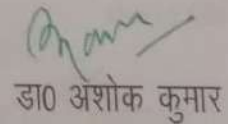 डा0 अशोक कुमार